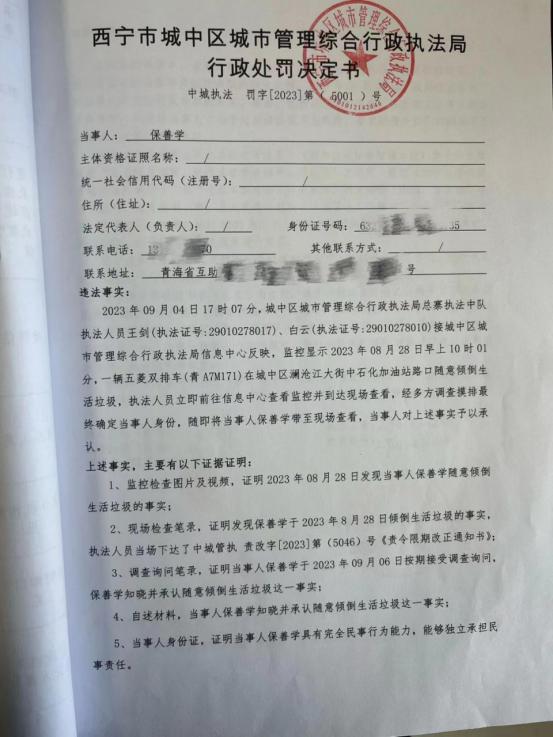 西宁市城中区城市管理综合行政执法局
行政处罚决定书
中城执法 罚字[2023]第（ 5001 ）号
当事人： 保善学
主体资格证照名称： /
统一社会信用代码（注册号）： /
住所（住址）： /
法定代表人（负责人）： / 身份证号码： 63 35
联系电话： 13 70 其他联系方式： /
联系地址： 青海省互助 号
违法事实：
2023 年 09 月 04 日 17 时 07 分，城中区城市管理综合行政执法局总寨执法中队
执法人员王剑(执法证号:29010278017)、白云(执法证号:29010278010)接城中区城
市管理综合行政执法局信息中心反映，监控显示 2023 年 08 月 28 日早上 10 时 01
分，一辆五菱双排车(青 A7M171)在城中区澜沧江大街中石化加油站路口随意倾倒生
活垃圾，执法人员立即前往信息中心查看监控并到达现场查看，经多方调查摸排最
终确定当事人身份，随即将当事人保善学带至现场查看，当事人对上述事实予以承
认。
上述事实，主要有以下证据证明：
1、监控检查图片及视频，证明 2023 年 08 月 28 日发现当事人保善学随意倾倒
生活垃圾的事实；
2、现场检查笔录，证明发现保善学于 2023 年 8 月 28 日倾倒生活垃圾的事实，
执法人员当场下达了中城管执 责改字[2023]第（5046）号《责令限期改正通知书》；
3、调查询问笔录，证明当事人保善学于 2023 年 09 月 06 日按期接受调查询问，
保善学知晓并承认随意倾倒生活垃圾这一事实；
4、自述材料，当事人保善学知晓并承认随意倾倒生活垃圾这一事实；
5、当事人身份证，证明当事人保善学具有完全民事行为能力，能够独立承担民
事责任。